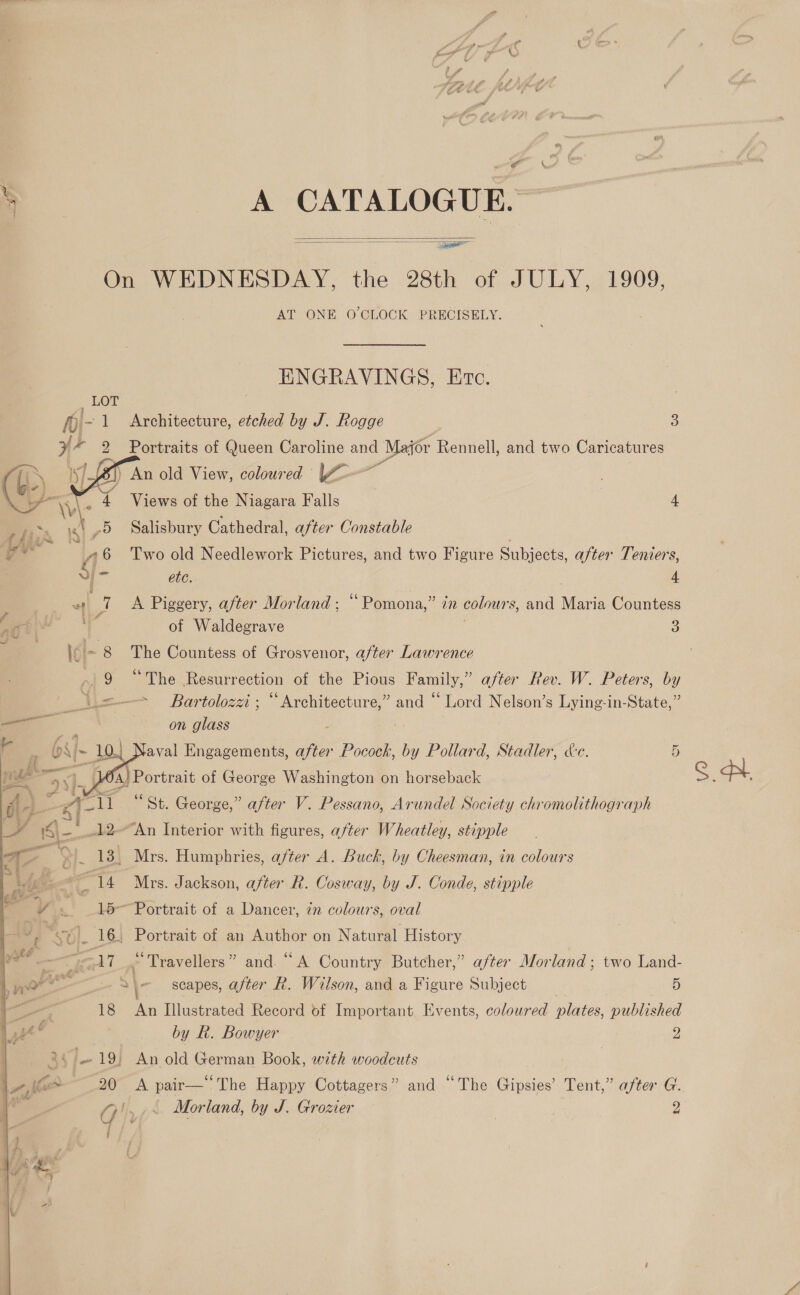 A CATALOGUE.
On WEDNESDAY, the 28th of JULY, 1909,
AT ONE O'CLOCK PRECISELY.
ENGRAVINGS, ETC.
LOT
1 Architecture, etched by J. Rogge 3
2 Portraits of Queen Caroline and Major Rennell, and two Caricatures
3 An old View, coloured
4 Views of the Niagara Falls 4
5 Salisbury Cathedral, after Constable
6 Two old Needlework Pictures, and two Figure Subjects, after Teniers,
etc. 4
7 A Piggery, after Morland; “Pomona,” in colours, and Maria Countess
of Waldegrave 3
8 The Countess of Grosvenor, after Lawrence
9 “The Resurrection of the Pious Family,” after Rev. W. Peters, by
Bartolozzi; “Architecture,” and “Lord Nelson's Lying-in-State,”
on glass
10 Naval Engagements, after Pocock, by Pollard, Stadler, &c. 5
10A Portrait of George Washington on horseback
S.H.
11 “St. George,” after V. Pessano, Arundel Society chromolithograph
12 An Interior with figures, after Wheatley, stipple
13 Mrs. Humphries, after A. Buck, by Cheesman, in colours
14 Mrs. Jackson, after R. Cosway, by J. Conde, stipple
15 Portrait of a Dancer, in colours, oval
16 Portrait of an Author on Natural History
17 “Travellers” and “A Country Butcher,” after Morland; two Land-
scapes, after R. Wilson, and a Figure Subject 5
18 An Illustrated Record of Important Events, coloured plates, published
by R. Bowyer 2
19 An old German Book, with woodcuts
20 A pair—“The Happy Cottagers” and “The Gipsies' Tent,” after G.
Morland, by J. Grozier 2